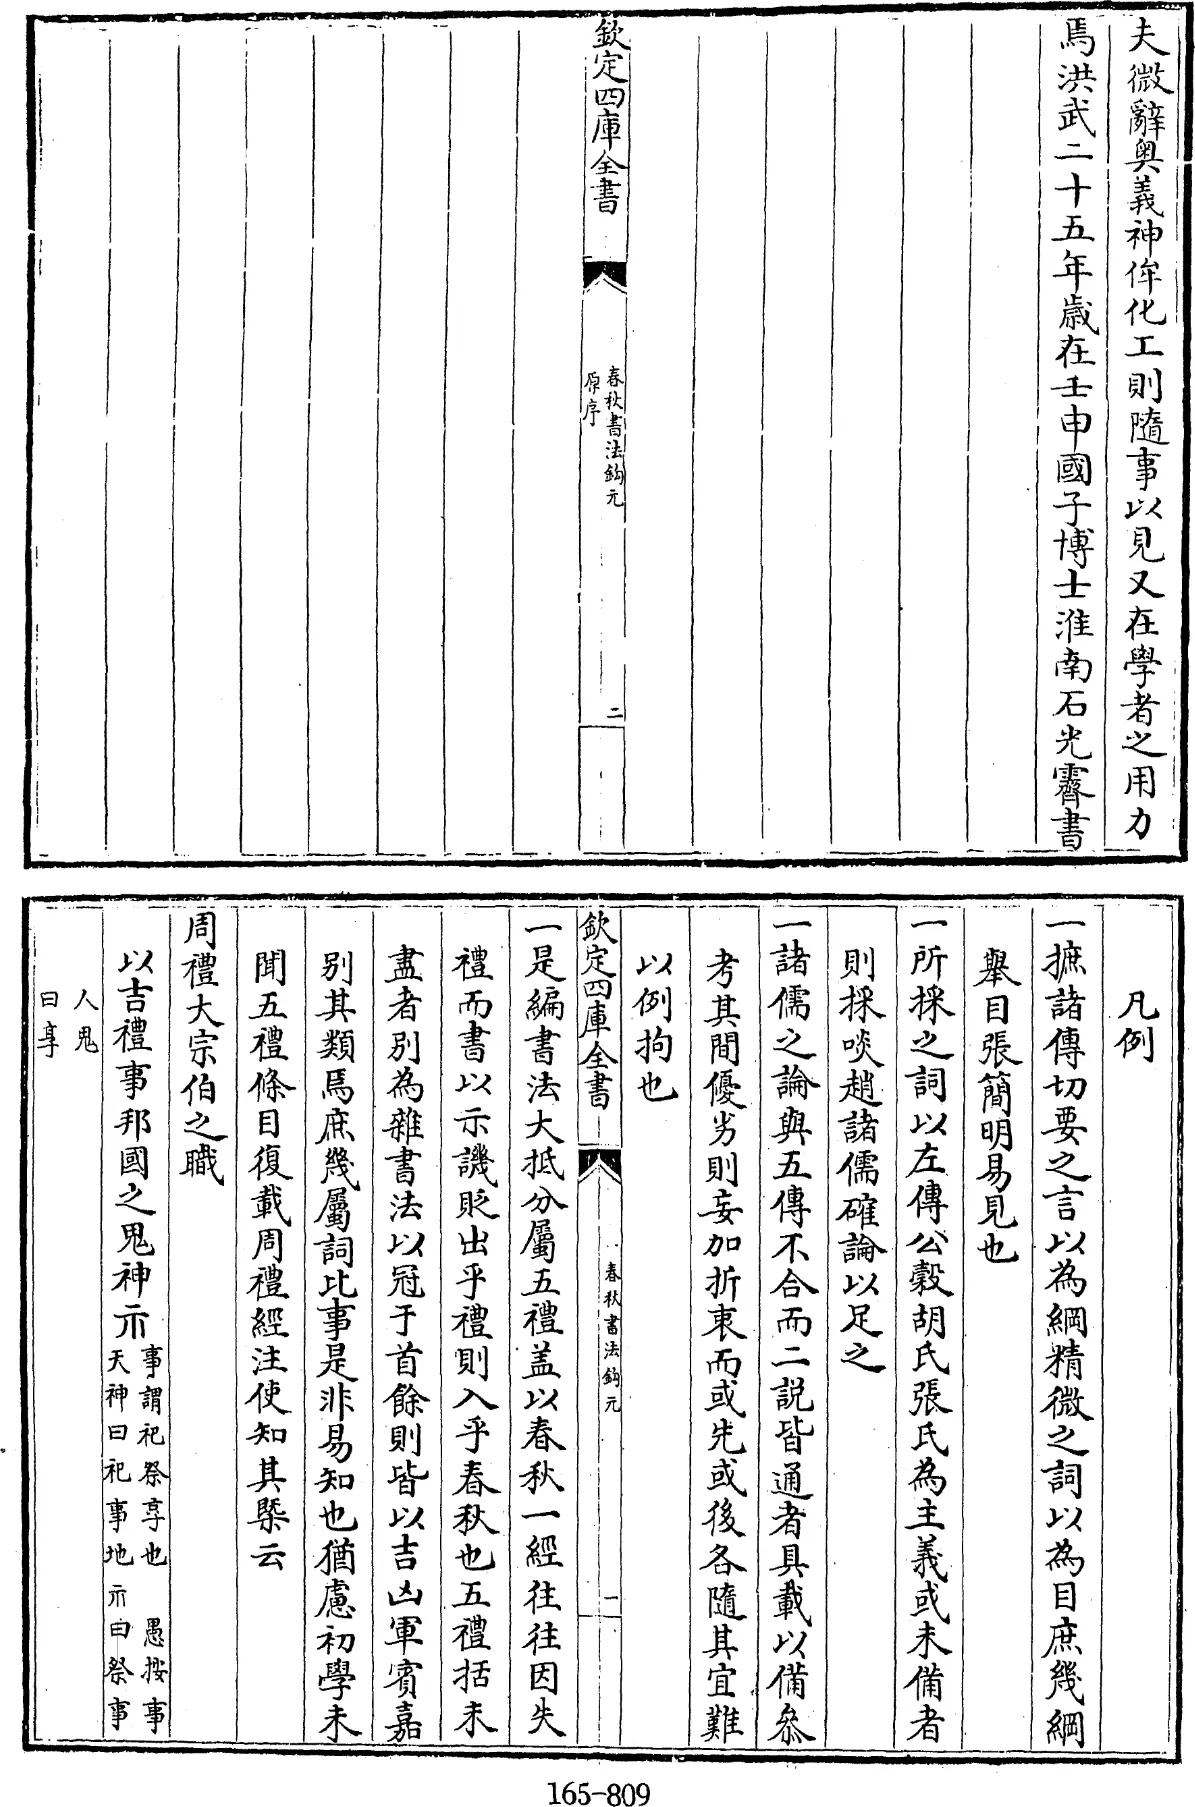 夫微辭奥義神侔化工則隨事以見又在學者之用力
焉洪武二十五年歲在壬申國子博士淮南石光霽書
欽定四庫全書
春秋書法鈎元
原序
二
凡例
一摭諸傳切要之言以為綱精微之詞以為目庶幾綱
舉目張簡明易見也
一所採之詞以左傳公穀胡氏張氏為主義或未備者
則採啖趙諸儒確論以足之
一諸儒之論與五傳不合而二説皆通者具載以備叅
考其間優劣則妄加折衷而或先或後各隨其宜難
以例拘也
欽定四庫全書
春秋書法鈎元
一
一是編書法大抵分屬五禮盖以春秋一經往往因失
禮而書以示譏貶出乎禮則入乎春秋也五禮括未
盡者别為雜書法以冠于首餘則皆以吉凶軍賓嘉
别其類焉庶幾屬詞比事是非易知也猶慮初學未
聞五禮條目復載周禮經注使知其槩云
周禮大宗伯之職
以吉禮事邦國之鬼神示
事謂祀祭享也 愚按事
天神曰祀事地示曰祭事
人鬼
曰享
165-809